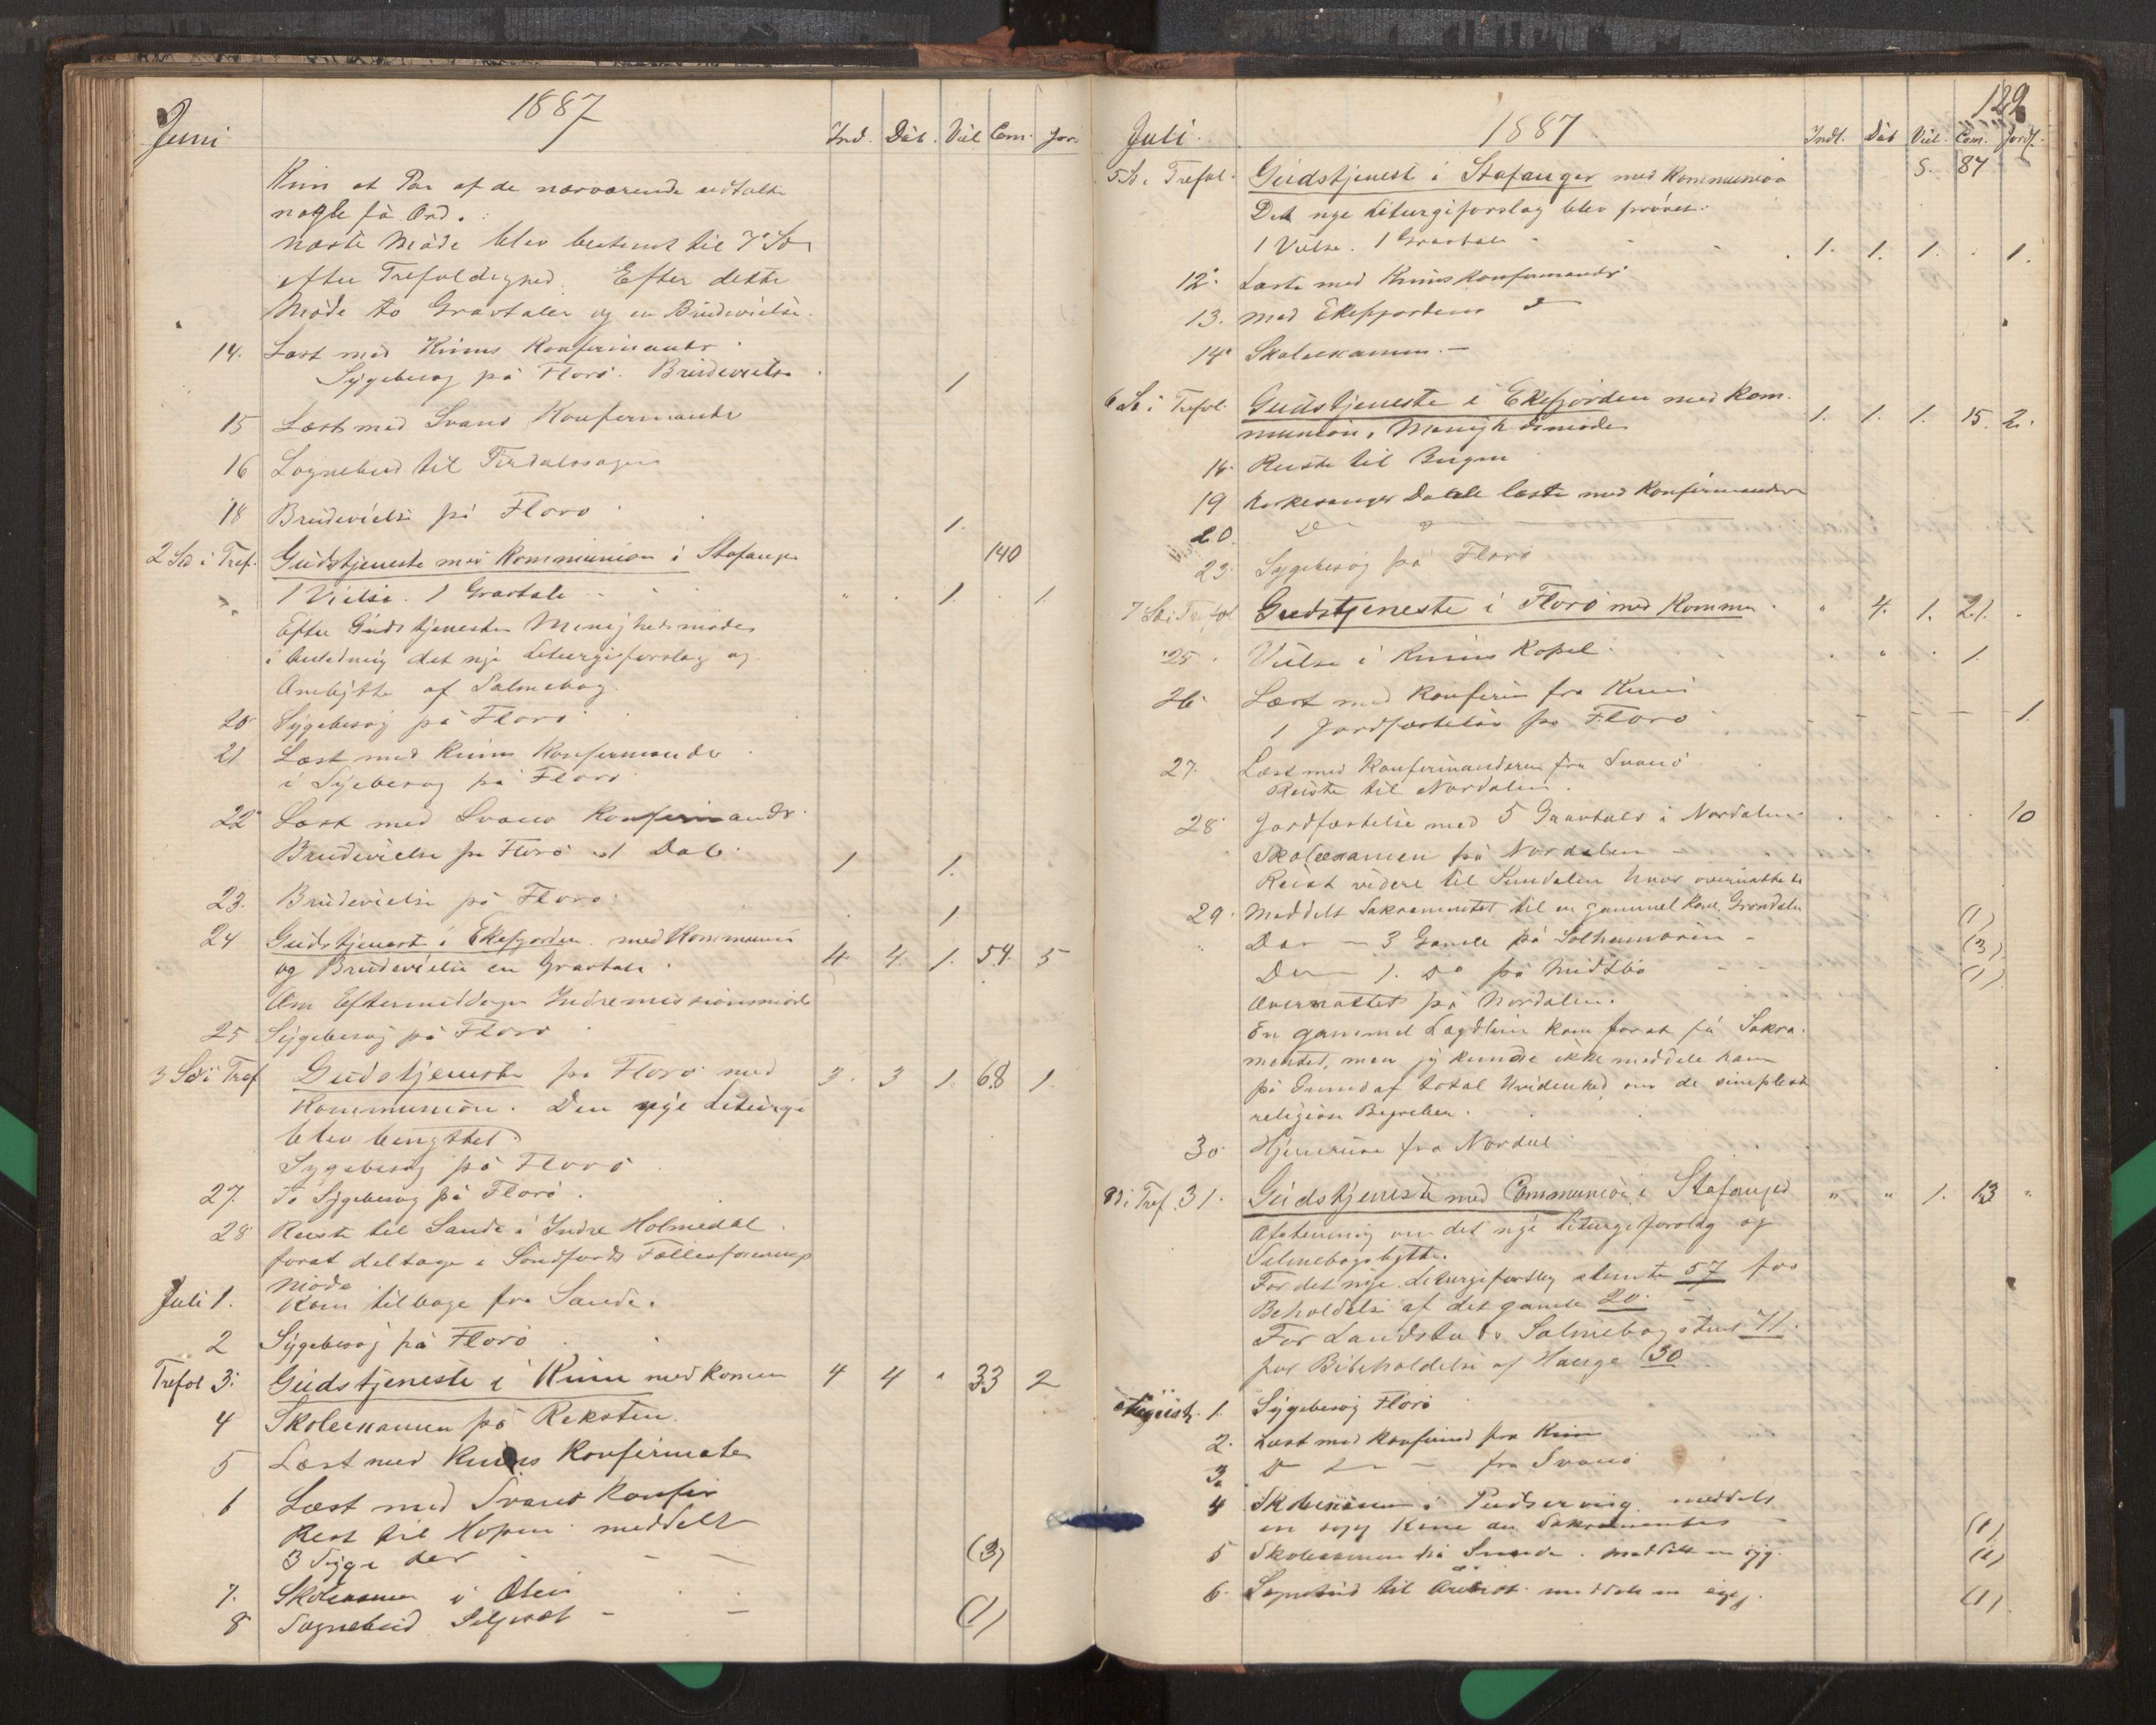 Juni 1887 Ind. Dåb. Viel Com. Jor
Kun et Par af de nærværende udtalte
nogle få Ord.
næste Møde blev bestemt til 7 Sø
efter Trefoldighed. Efter dette
Møde to Gravtaler og en Brudevielse.
14. Læst med Kinns Konfirmander
Sygebesøg på Florø. Brudevielse 1
15 Læst med Svanø Konfirmander
16 Sognebud til
18 Brudevielse på Florø 1.
2 Sø i Tref. Gudstjeneste med Kommunion i Stafanger 140
1 Vielse. 1 Gravtale 1. 1.
Efter Gudstjenesten Menighedsmøde
i Anledning det nye Liturgiforslag og
Ombytte af Salmebog.
20 Sygebesøg på Florø
21 Læst med Kinns Konfirmander
i Sygebesøg på Florø
22 Læst med Svanø Konfirmander
Brudevielse på Florø 1 Dåb 1 1.
23. Brudevielse på Florø. 1
24 Gudstjenest i Ekefjorden med Kommunion
og Brudevielse en Gravtale 4 4. 1. 54. 5
Om Eftermiddagen Indremissionsmøde
25 Sygebesøg på Florø
3 Sø i Tref Gudstjeneste på Florø med 3. 3 1. 68 1.
Kommunion. Den nye Liturgi
blev benyttet
Sygebesøg på Florø
27. To Sygebesøg på Florø.
28 Reiste til Sande i Indre Holmedal
forat deltage i Søndfjords Fællesforenings
møde
Juli 1. Kom tilbage fra Sande.
2 Sygebesøg på Florø
Trefol 3. Gudstjeneste i Kinn med komm 4 4 " 33 2
4 Skoleexamen på Reksten.
5 Læst med Kinns Konfirmater
6 Læst med Svanø Konfir
Rest til Hopen meddelt
3 Syge der (3)
7. Skolexamen i
8 Sognebud (1)
Juli. 1887 189
Indl. Dåb Viel. Com. Jordf.
5 Sø. Trefol. Gudstjenest i Stafanger med Kommunion 5. 87
Det nye Liturgiforslag blev prøvet.
1 Vielse. 1 Gravtale 1. 1. 1. 1.
12. Læste med Kinns Konfirmander
13. med Ekefjordens d
14 Skoleexamen. —
6 Sø i Trefol. Gudstjeneste i Ekefjorden med Kom-
munion, Menighedsmøde 1. 1. 1. 15. 2.
Reiste til
19 Kirkesanger læste med Konfirmander
20.
23. Sygebesøg på Florø
7 Sø i Trefol Gudstjeneste i Florø med Kommu " 4. 1. 21.
25 Vielse i Kinns Kapel. 1.
26 Læst med Konfirm fra Kinn
1 Jordfæstelse på Florø 1.
27. Læst med Konfirmanderne fra Svanø
Reiste til Nordalen.
28 Jordfæstelse med 5 Gravtaler i Nordalen 10
Skoleexamen på Nordalen
Reist videre til Sundalen hvor overnattede
29. Meddelt Sakramentet til en gammel Kone Grøndalen (1)
3 Gamle på (3)
1. Do på Midtbø (1)
Overnattet på Nordalen.
En gammel Lægdslem kom forat få Sakra-
mentet, men jeg kunde ikke meddele ham
på Grund af total Uvidenhed om de simpleste
religiøse Begreber.
30 Hjemreise fra Nordal
8 i Tref. 31. Gudstjeneste med Communion i Stafanger " " 1. 13 "
Afstemning om det nye Liturgiforslag og
Salmebogsbytte.
For det nye Liturgiforslag stemte 57 for
Beholdelse af det gamle 20.
For Landstads Salmebog stem 71.
for Bibeholdelse af Hauge 30
August. 1. Sygebesøg Florø
2. Læst med Konfirmd fra Kinn
3. D — fra Svanø
4 Skolexamen i meddelt
en syg Kone der Sakramentet (1)
5 Skolexamen på meddelt en syg. (1)
6. Sognebud til meddelt en syg. (1)